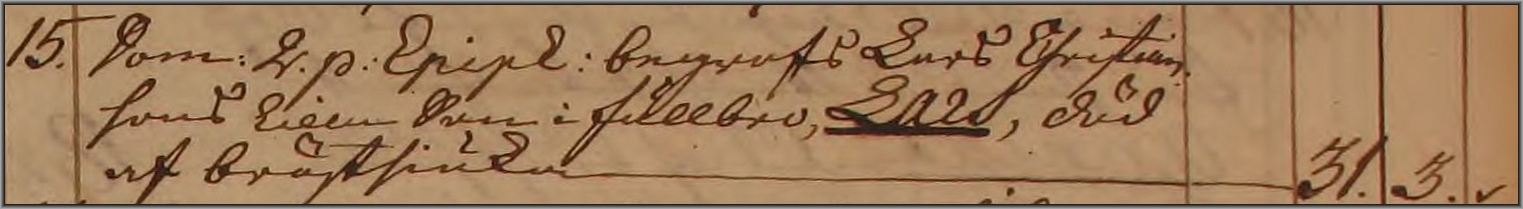 15. Dom: 2. p: Epiph: begrofs Lars Christian
sons lilla Son i fullbro, Lars, död
af bröstsiuka 31. 3.